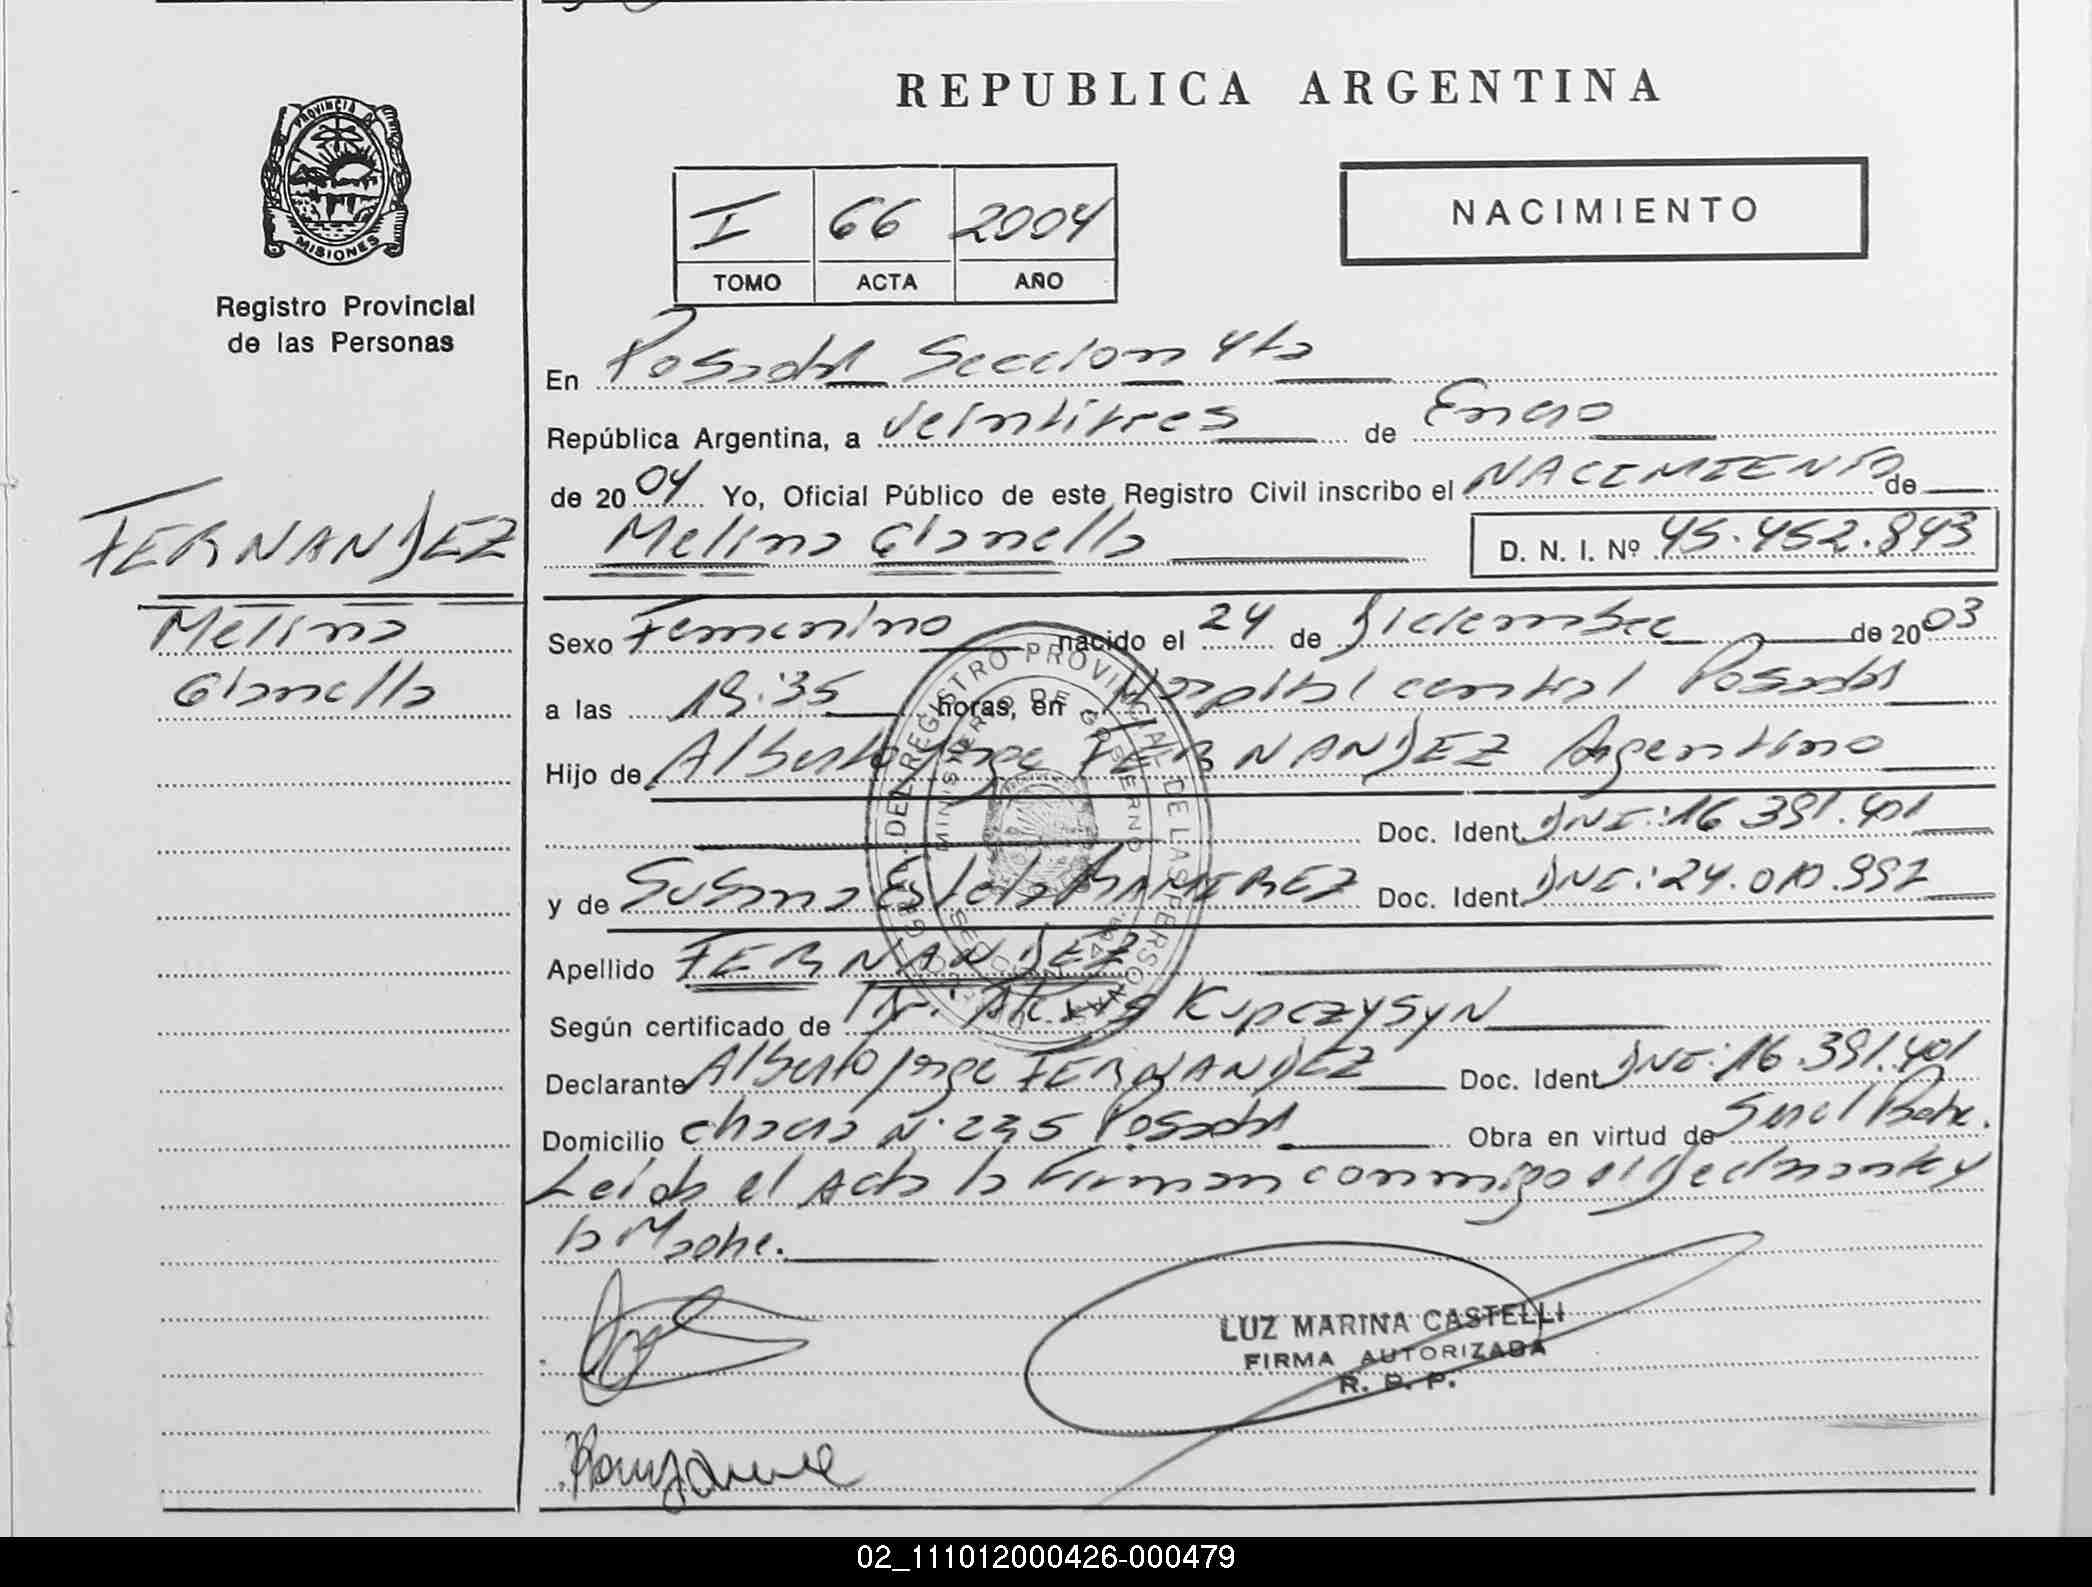 PROVINCIA DE
MISIONES
Registro Provincial
de las Personas
FERNANDEZ
Melina
Gianella
REPUBLICA ARGENTINA
I 66 2004
TOMO ACTA AÑO
NACIMIENTO
En Posadas Seccion 4ta
República Argentina, a veintitres de Enero
de 2004 Yo, Oficial Público de este Registro Civil inscribo el NACIMIENTO de
Melina Gianella D. N. I. Nº 45.452.843
Sexo Femenino nacido el 24 de Diciembre de 2003
a las 19:35 horas, en Hospital central Posadas
Hijo de Alberto Jorge FERNANDEZ Argentino
Doc. Ident. DNI: 16.391.401
y de Susana Estela RAMIREZ Doc. Ident. DNI: 24.010.997
Apellido FERNANDEZ
Según certificado de Dr. Alexis Kupczysyn
Declarante Alberto Jorge FERNANDEZ Doc. Ident. DNI: 16.391.401
Domicilio chacra Nº 235 Posadas Obra en virtud de Ser el Padre.
Leida el Acta la firman conmigo el Declarante y
la Madre.
DEL REGISTRO PROVINCIAL DE LAS PERSONAS
MINISTERIO DE GOBIERNO
LUZ MARINA CASTELLI
FIRMA AUTORIZADA
R. P. P.
02_111012000426-000479